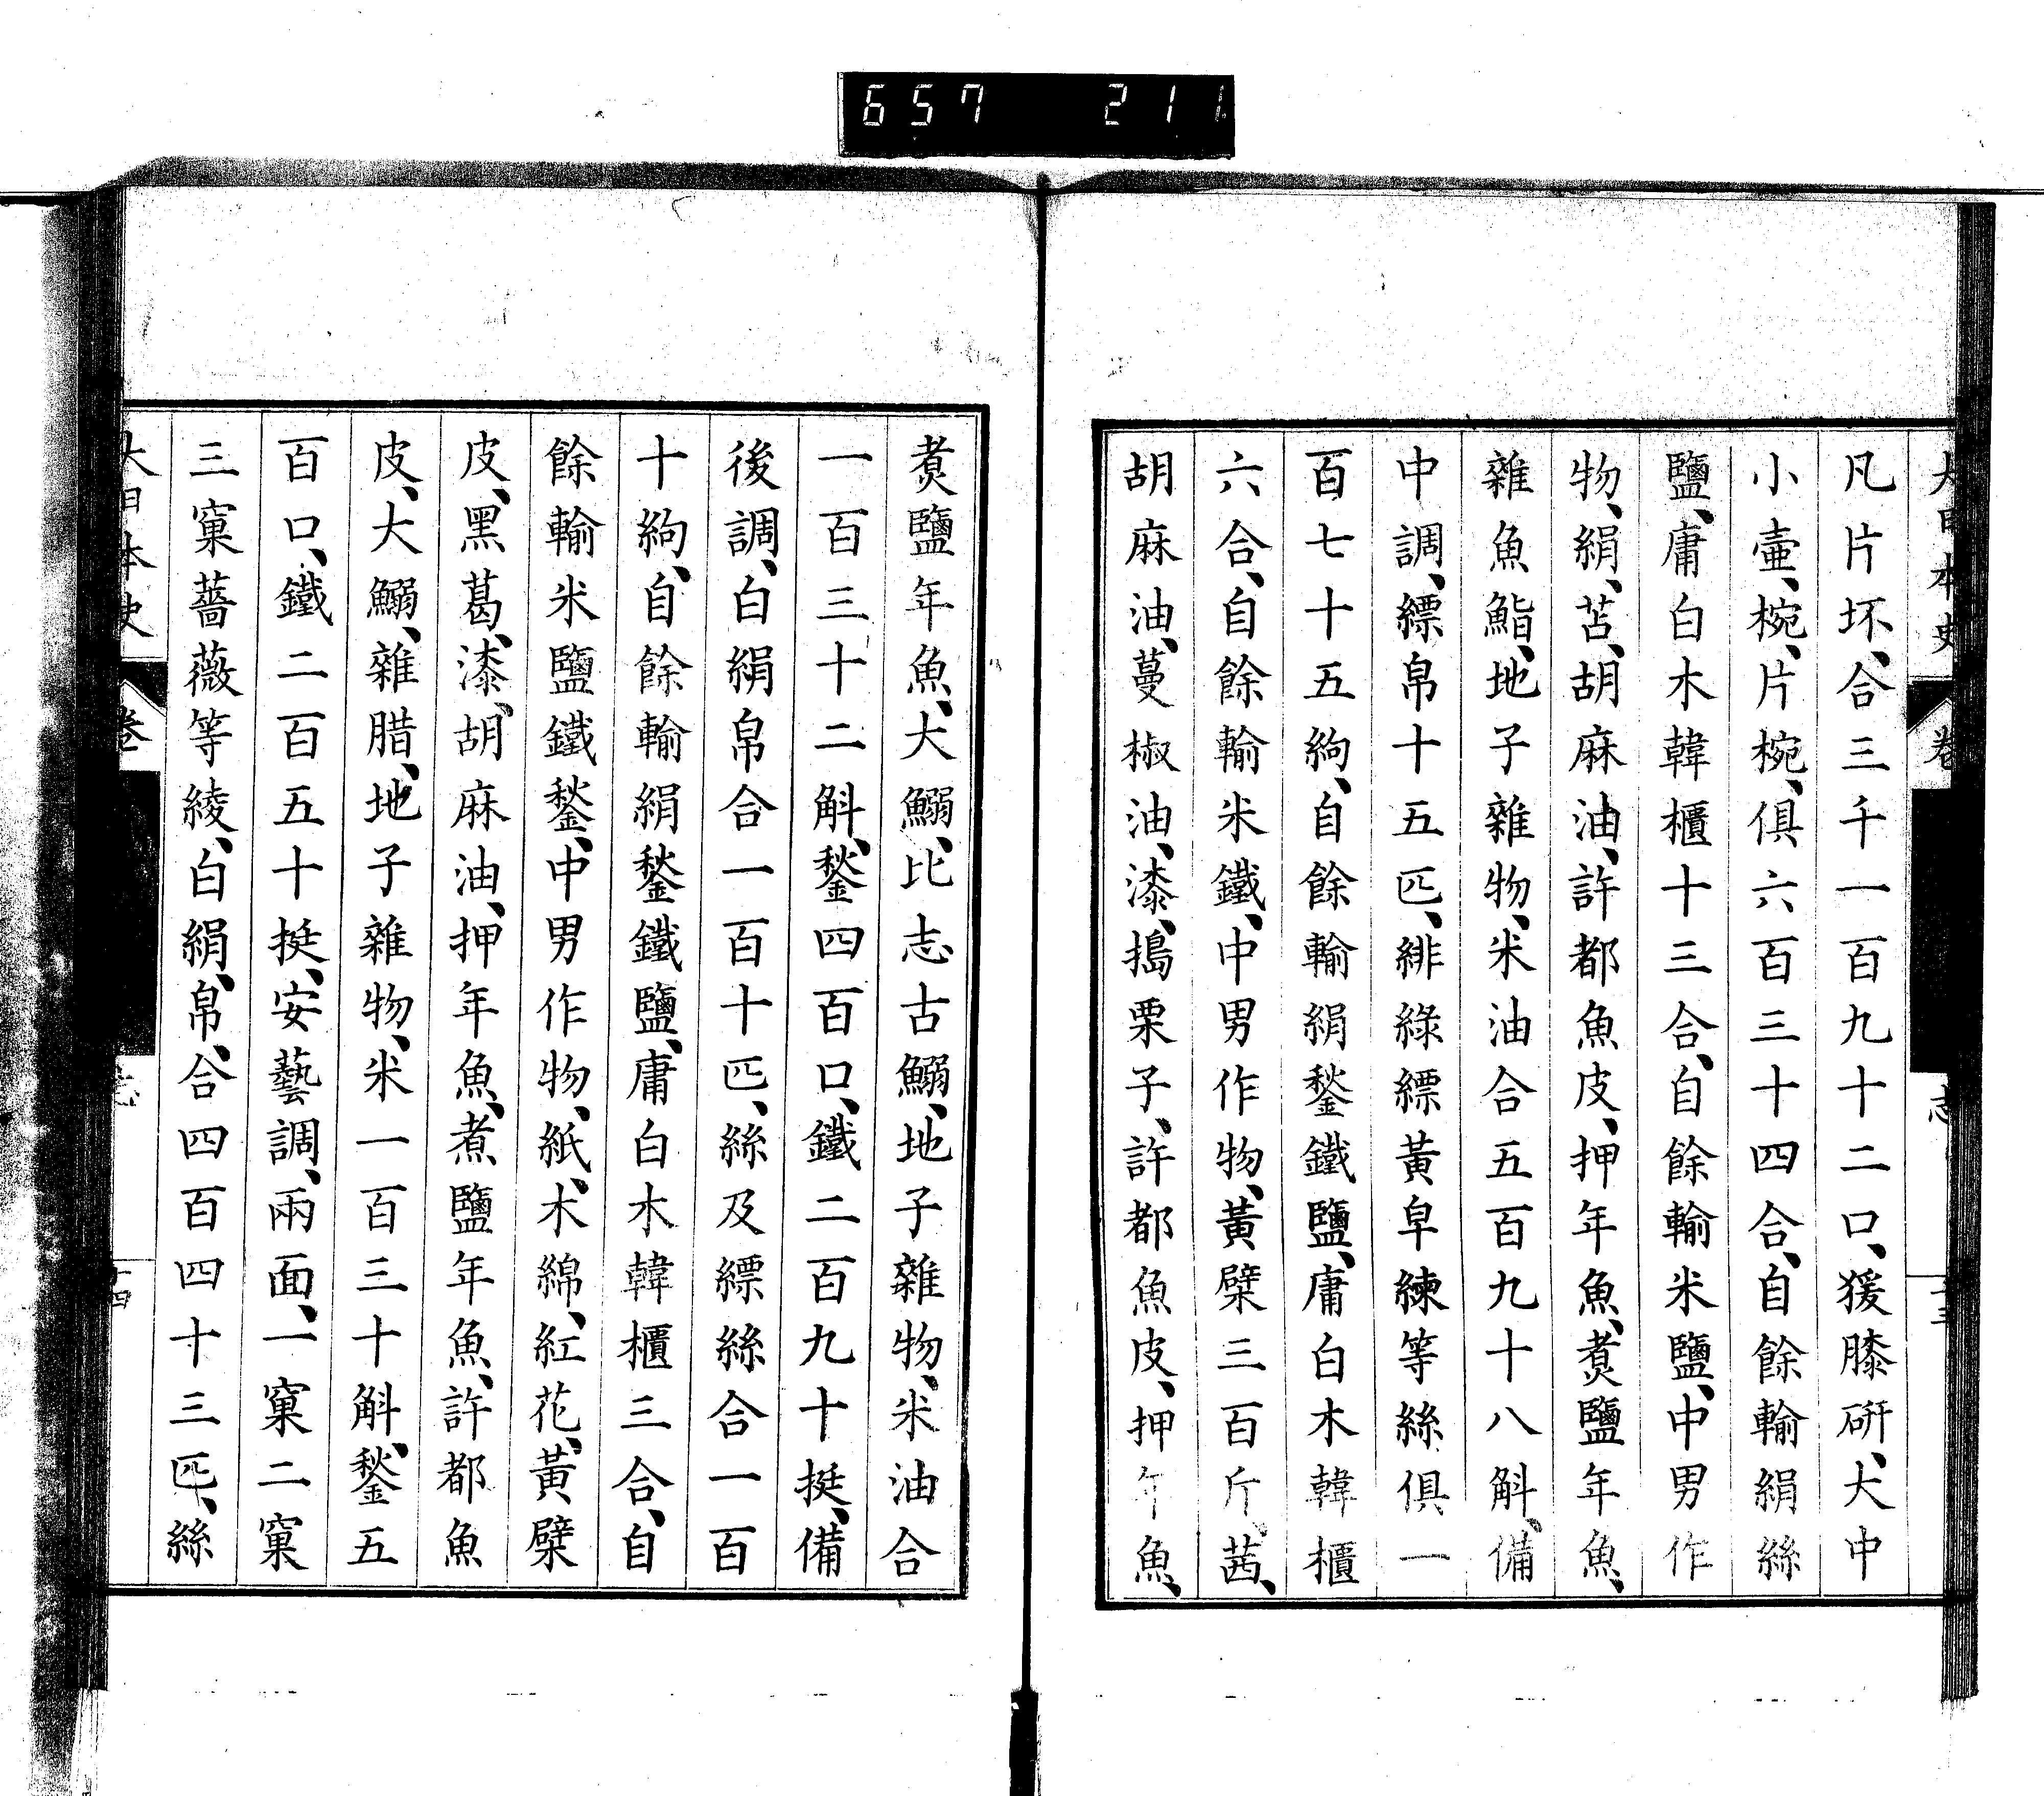 657 211
大日本史 卷 志
凡片坏、合三千一百九十二口、猨膝硏、大中
小壷、椀、片椀、俱六百三十四合、自餘輸絹絲
鹽、庸白木韓櫃十三合、自餘輸米鹽、中男作
物、絹、苫、胡麻油、許都魚皮、押年魚、煮鹽年魚、
雜魚鮨、地子雜物、米油合五百九十八斛、備
中調、縹帛十五匹、緋綠縹黃皁練等絲俱一
百七十五絇、自餘輸絹鍫鐵鹽、庸白木韓櫃
六合、自餘輸米鐵、中男作物、黃櫱三百斤、茜、
胡麻油、蔓椒油、漆、搗栗子、許都魚皮、押年魚、
煮鹽年魚、大鰯、比志古鰯、地子雜物、米油合
一百三十二斛、鍫四百口、鐵二百九十挺、備
後調、白絹帛合一百十匹、絲及縹絲合一百
十絇、自餘輸絹鍫鐵鹽、庸白木韓櫃三合、自
餘輸米鹽鐵鍫、中男作物、紙、木綿、紅花、黃櫱
皮、黑葛、漆、胡麻油、押年魚、煮鹽年魚、許都魚
皮、大鰯、雜腊、地子雜物、米一百三十斛、鍫五
百口、鐵二百五十挺、安藝調、兩面、一窠二窠
三窠薔薇等綾、白絹、帛、合四百四十三匹、絲
大日本史 卷 志 十四